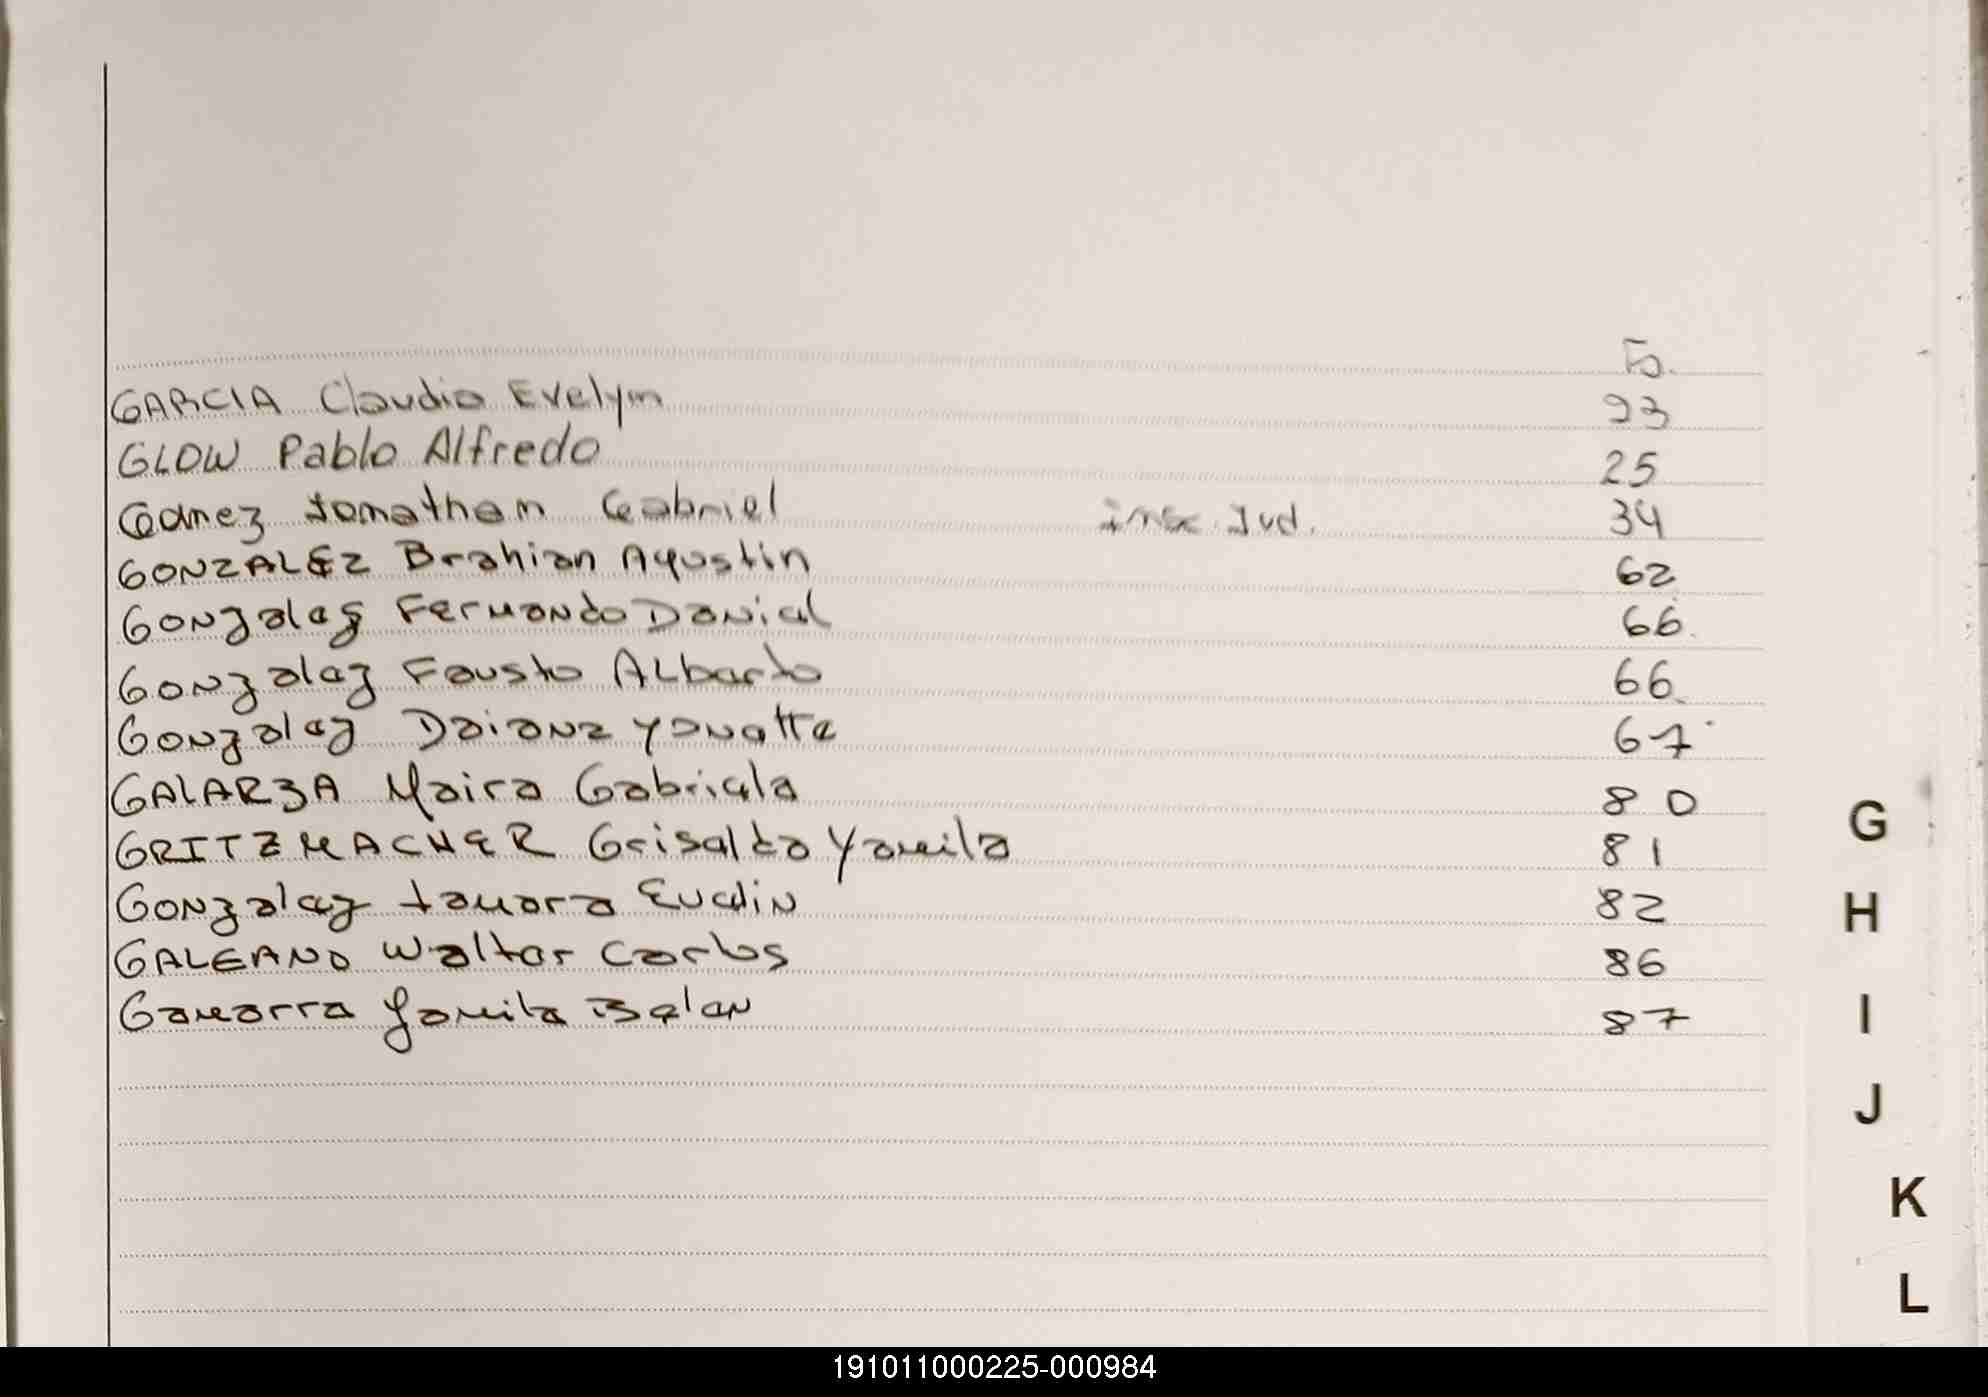 Fo.
GARCIA Claudia Evelyn 23
GLOW Pablo Alfredo 25
Gómez Jonathan Gabriel insc. Jud. 34
GONZALEZ Brahian Agustin 62
Gonzalez Fernando Daniel 66
Gonzalez Fausto Alberto 66
Gonzalez Daiana Yanette 67
GALARZA Maira Gabriela 80
GRITZMACHER Griselda Yamila 81
Gonzalez tamara Evelin 82
GALEANO Walter Carlos 86
Gamarra Yamila Belen 87
G
H
I
J
K
L
191011000225-000984